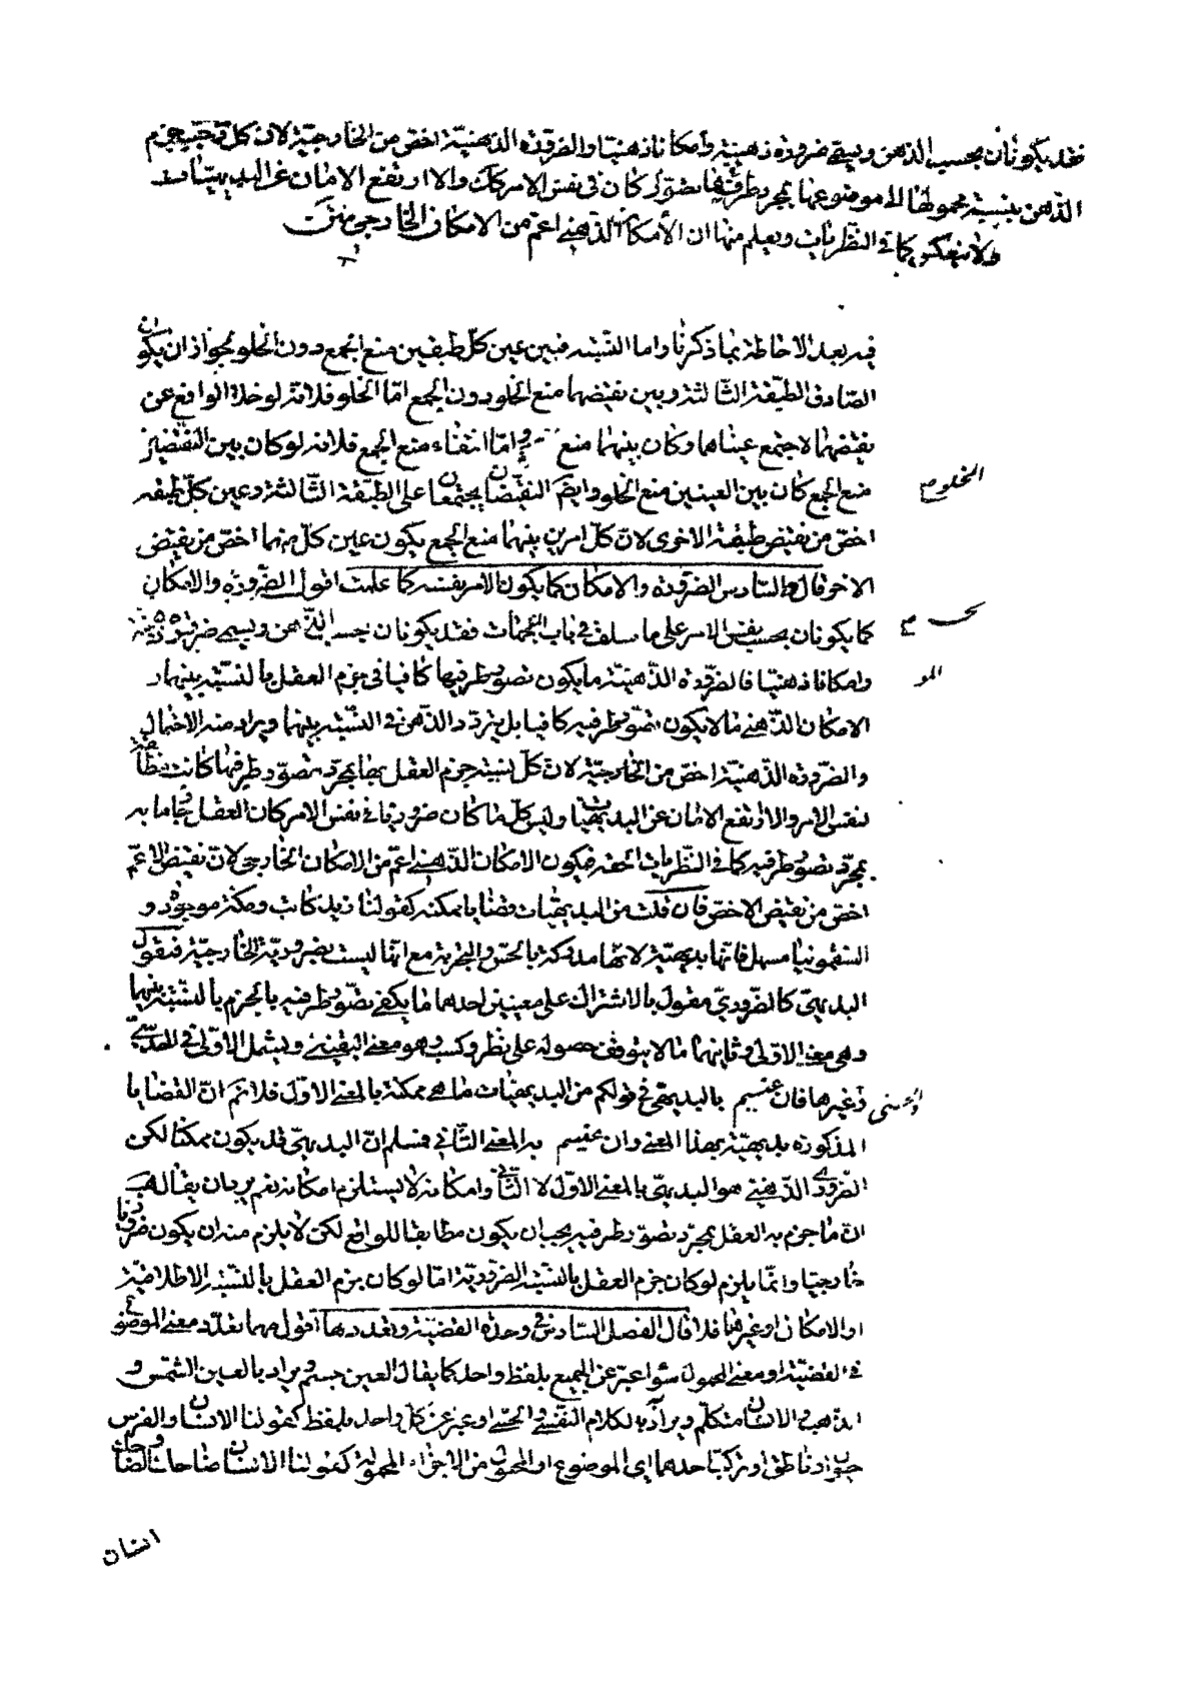 فقد يكونان بحسب الذهن ويسمى ضرورة ذهنية وامكانا ذهنيا والضرورة الذهنية اخص من الخارجية لان كل قضية يجزم
الذهن بنسبة محمولها الى موضوعها بمجرد طرفيها كان فى نفس الامر كك والا ارتفع الامان عن البديهيات
ولا ينعكس كما فى النظريات ويعلم منها ان الامكان الذهنى اعم من الامكان الخارجى
فيه بعد الاحاطة بما ذكرنا واما النسبة فبين عين كل طبقتين منع الجمع دون الخلو لجواز ان يكون
الصادق الطبقة الثالثة وبين نقيضهما منع الخلو دون الجمع اما الخلو فلانه لو خلا الواقع عن
نقيضهما لاجتمع عيناهما وكان بينهما منع واما انتفاء منع الجمع فلانه لو كان بين النقيضين
منع الجمع كان بين العينين منع الخلو وايضا النقيضان يجتمعان على الطبقة الثالثة وعين كل طبقة
اخص من نقيض طبقة الاخرى لان كل امرين بينهما منع الجمع يكون عين كل منهما اخص من نقيض
الاخر قال والسادس الضرورة والامكان كما يكون الامر نفسه كما علمت اقول الضرورة والامكان
كما يكونان بحسب نفس الامر على ما سلف فى باب الجهات فقد يكونان بحسب الذهن ويسمى ضرورة ذهنية
وامكانا ذهنيا فالضرورة الذهنية ما يكون تصور طرفيها كافيا فى جزم العقل بالنسبة بينهما و
الامكان الذهنى ما لا يكون تصور طرفيه كافيا بل يتردد الذهن فى النسبة بينهما ويراد منه الاحتمال
والضرورة الذهنية اخص من الخارجية لان كل نسبة جزم العقل بها بمجرد تصور طرفيها كانت مطابقة
لنفس الامر والا ارتفع الامان عن البديهيات وليس كل ما كان ضروريا فى نفس الامر كان العقل جازما به
بمجرد تصور طرفيه كما فى النظريات الحقه فيكون الامكان الذهنى اعم من الامكان الخارجى لان نقيض الاعم
اخص من نقيض الاخص فان قلت من البديهيات قضايا ممكنة كقولنا زيد كاتب ومكة موجودة و
السقمونيا مسهل فانها بديهية لانها مدركة بالحس والتجربة مع انها ليست بضرورية الخارجية فنقول
البديهى كالضرورى مقول بالاشتراك على معنيين احدهما ما يكفى تصور طرفيه بالجزم بالنسبة بينهما
وهى معنى الاولى وثانيهما ما لا يتوقف حصوله على نظر وكسب وهو معنى اليقينى ويشمل الاولى والحدسى
وغيرها فان عنيتم بالبديهى فى قولكم من البديهيات ما هى ممكنة بالمعنى الاول فلانم ان القضايا
المذكورة بديهية بهذا المعنى وان عنيتم به المعنى الثانى فنسلم ان البديهى قد يكون ممكنا لكن
الضرورى الذهنى هو البديهى بالمعنى الاول لا الثانى وامكانه لا يستلزم امكانه نعم يرد ان يقال هب
ان ما جزم به العقل بمجرد تصور طرفيه يجب ان يكون مطابقا للواقع لكن لا يلزم منه ان يكون ضروريا
خارجيا وانما يلزم لو كان جزم العقل بالنسبة الضرورية اما لو كان جزم العقل بالنسبة الاطلاقية
او الامكان او غيرهما فلا قال الفصل السادس فى وحدة القضية وتعددها اقول مهما تعدد معنى الموضوع
فى القضية او معنى المحمول سواء عبر عن الجميع بلفظ واحد كما يقال العين جسم ويراد بالعين الشمس و
الذهب والانسان متكلم ويراد بالكلام النفسى والحسى او عبر عن كل واحد بلفظ كقولنا الانسان والفرس
حيوان ناطق او تركب احدهما اى الموضوع او المحمول من الاجزاء المحمولة كقولنا الانسان ضاحك
الخلو م
انسان